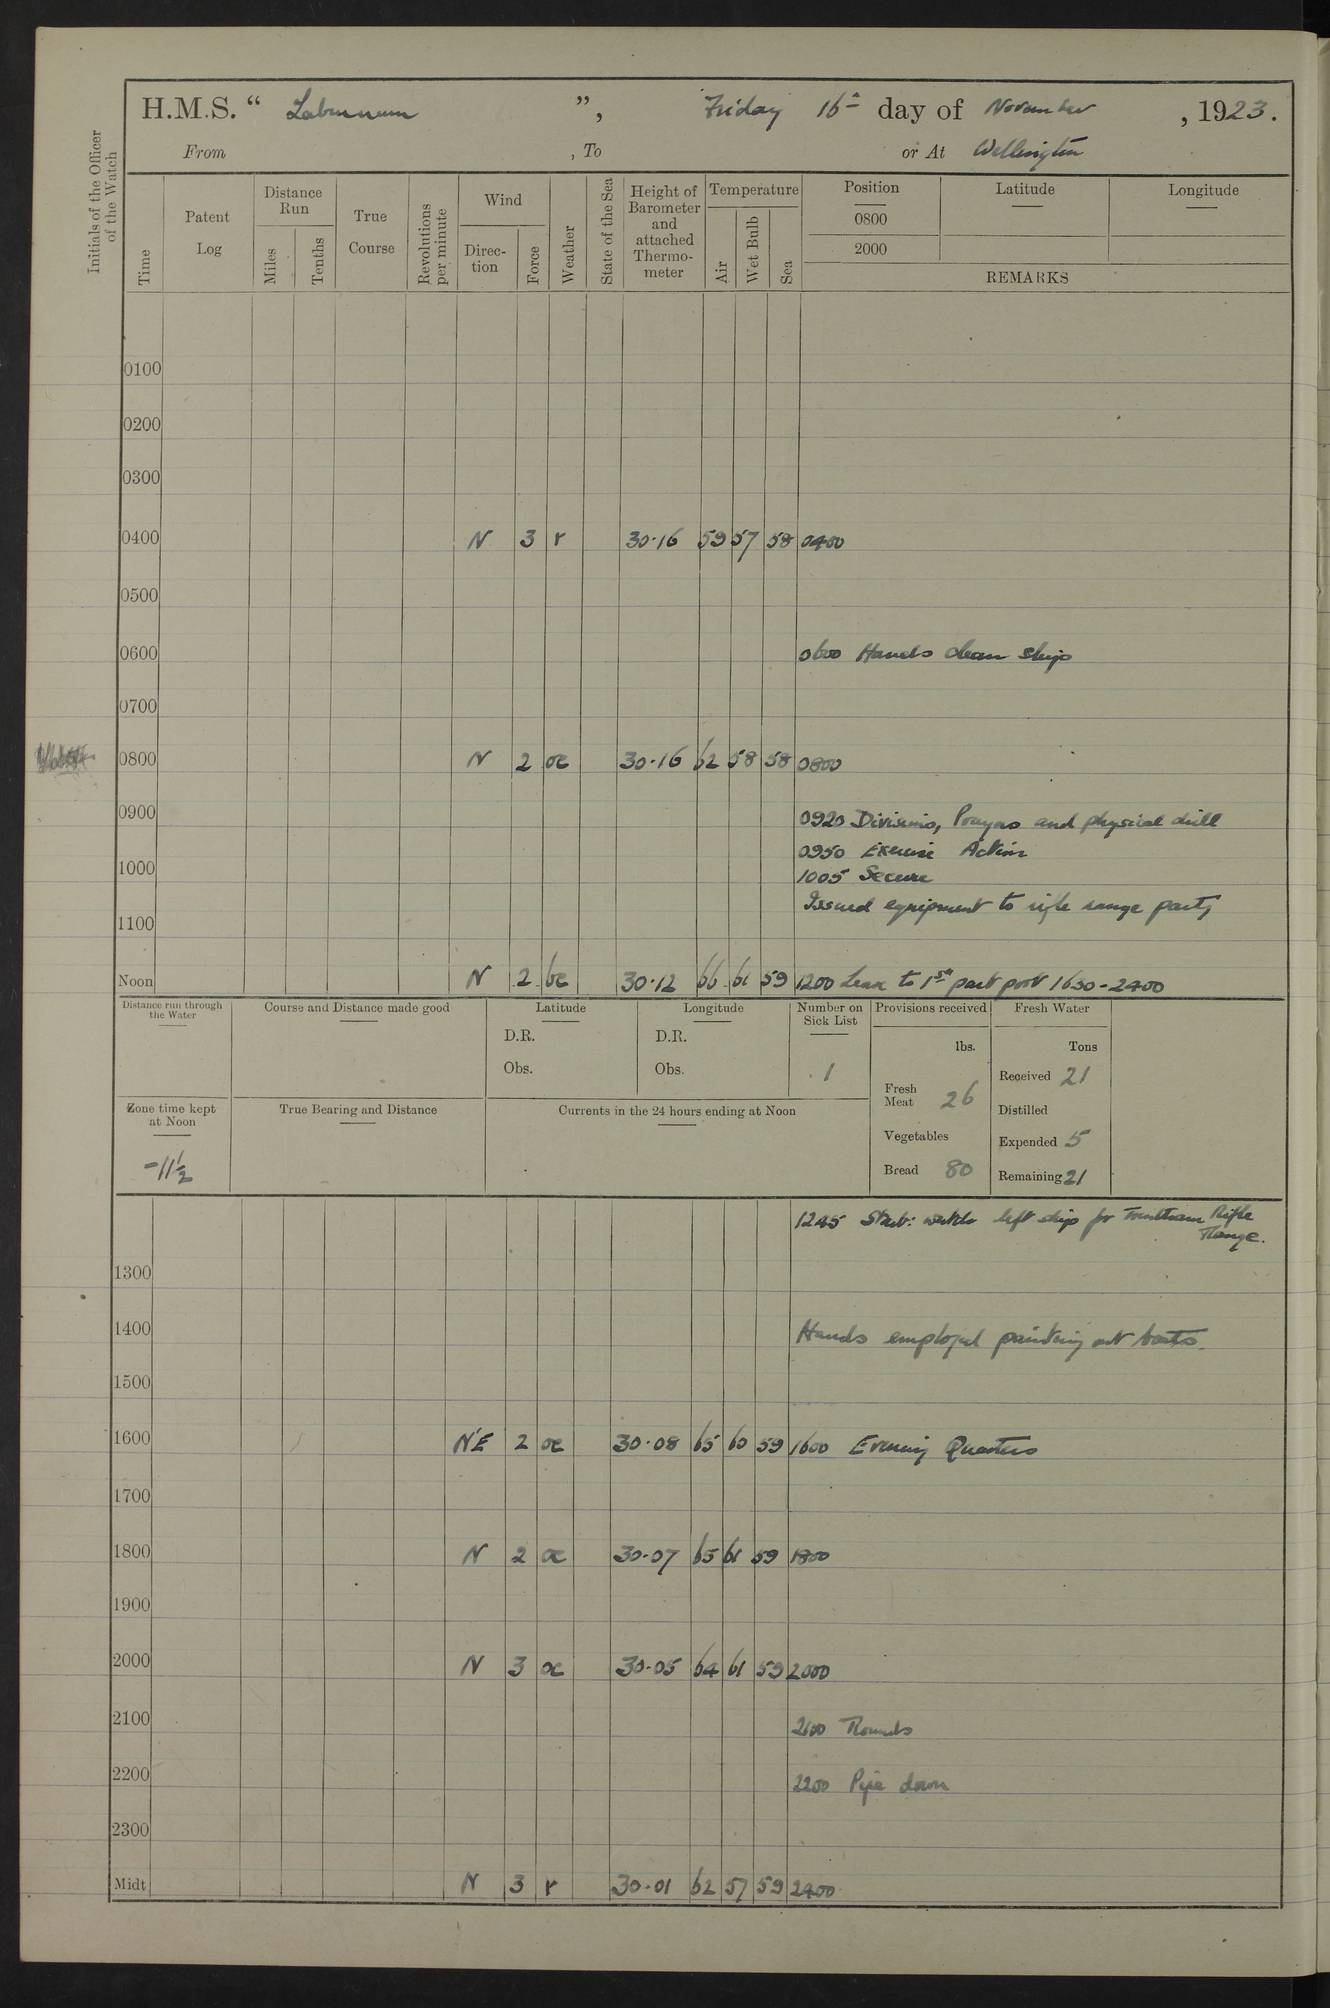 H.M.S. " Laburnum ", Friday 16th day of November, 1923.
From , To or At Wellington
Initials of the Officer of the Watch
Time
Patent Log
Distance Run
Miles
Tenths
True Course
Revolutions per minute
Wind
Direction
Force
Weather
State of the Sea
Height of Barometer and attached Thermometer
Temperature
Air
Wet Bulb
Sea
Position Latitude Longitude
0800
2000
REMARKS
0100
0200
0300
0400 N 3 r 30.16 59 57 58 0400
0500
0600 0600 Hands clean ship
0700
0800 N 2 oc 30.16 62 58 58 0800
0900 0920 Divisions, Prayers and physical drill
0950 Exercise Action
1000 1005 Secure
Issued equipment to rifle range party
1100
Noon N 2 bc 30.12 66 61 59 1200 Leave to 1st part port 1630-2400
Distance run through the Water
Course and Distance made good
Latitude
D.R.
Obs.
Longitude
D.R.
Obs.
Number on Sick List
1
Provisions received
lbs.
Fresh Meat 26
Vegetables
Bread 80
Fresh Water
Tons
Received 21
Distilled
Expended 5
Remaining 21
Zone time kept at Noon
-11½
True Bearing and Distance
Currents in the 24 hours ending at Noon
1245 Starb: watch left ship for Trentham Rifle
Range.
1300
1400 Hands employed painting out boats.
1500
1600 N'E 2 oc 30.08 65 60 59 1600 Evening Quarters
1700
1800 N 2 oc 30.07 65 61 59 1800
1900
2000 N 3 oc 30.05 64 61 59 2000
2100 2100 Rounds
2200 2200 Pipe down
2300
Midt N 3 r 30.01 62 57 59 2400